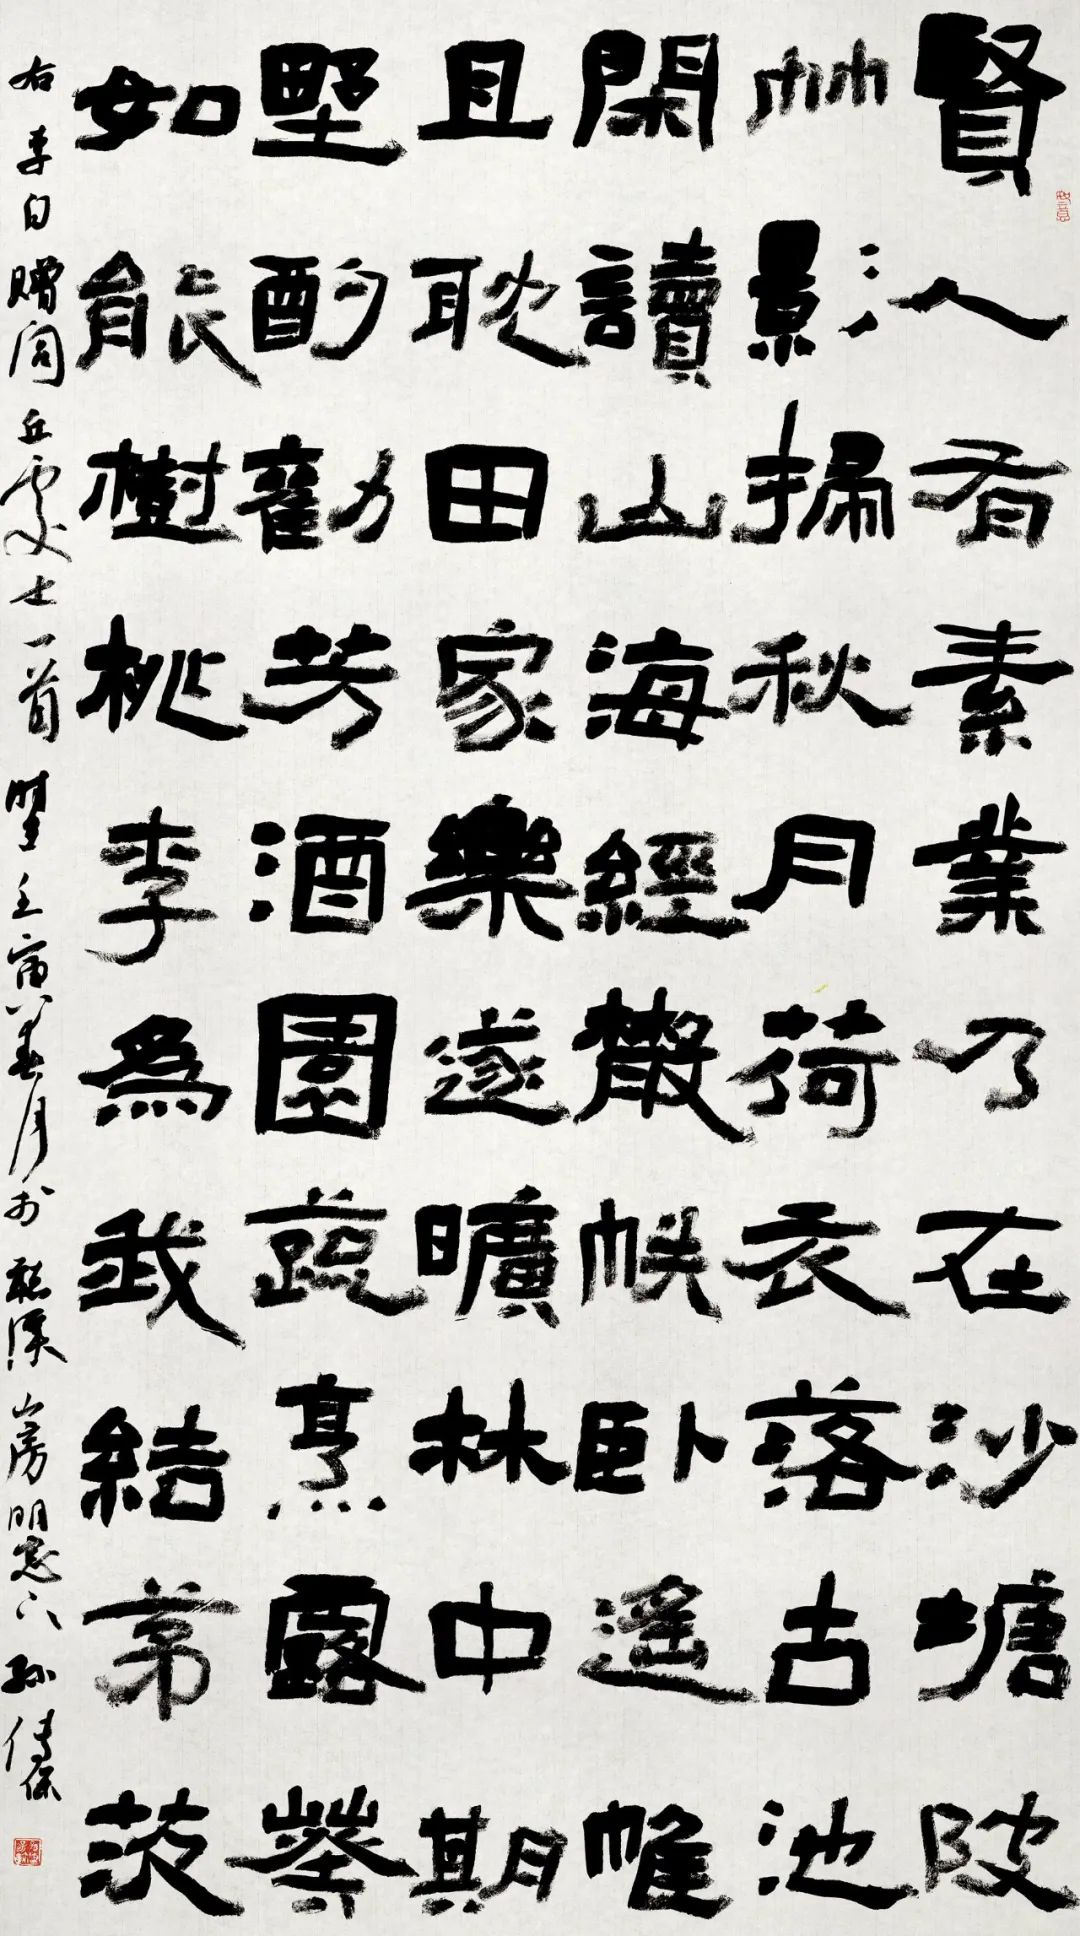 賢人有素業乃在沙塘陂
竹影掃秋月荷衣落古池
閑讀山海經散帙臥遙帷
且耽田家樂遂曠林中期
野酌勸芳酒園蔬烹露葵
如能樹桃李爲我結茅茨
右李白贈閭丘處士一首 壬寅春月於 山房明窗下孫傳保